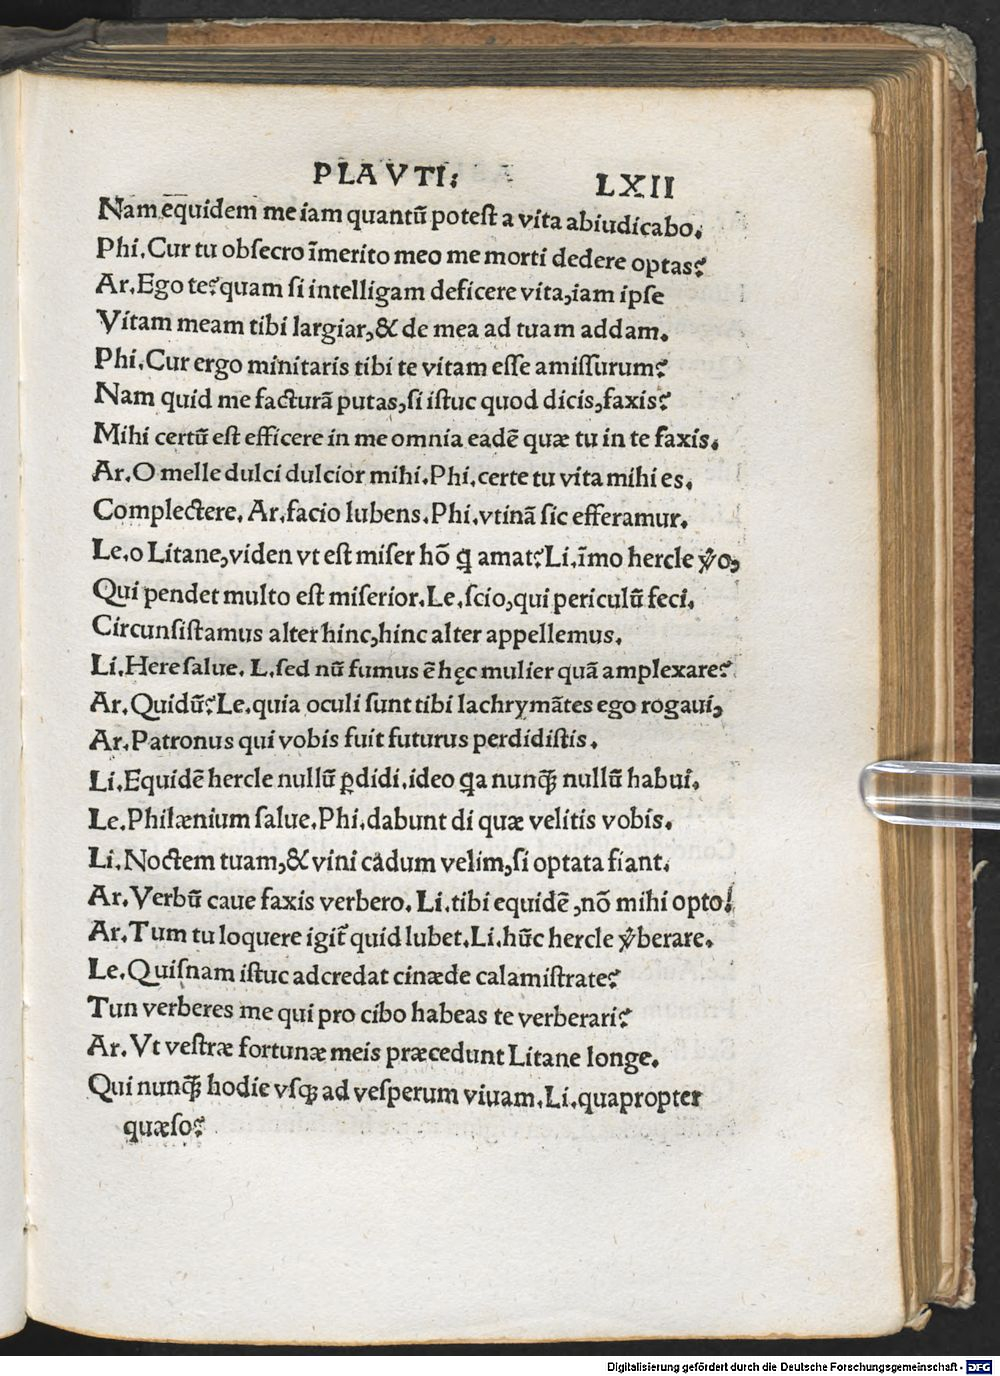 PLAVTI: LXII
Nam equidem me iam quantū potest a vita abiudicabo.
Phi. Cur tu obsecro īmerito meo me morti dedere optas?
Ar. Ego te? quam si intelligam deficere vita, iam ipse
Vitam meam tibi largiar, & de mea ad tuam addam.
Phi. Cur ergo minitaris tibi te vitam esse amissurum?
Nam quid me facturā putas, si istuc quod dicis, faxis?
Mihi certū est efficere in me omnia eadē quæ tu in te faxis.
Ar. O melle dulci dulcior mihi. Phi. certe tu vita mihi es.
Complectere. Ar. facio lubens. Phi. vtinā sic efferamur.
Le. o Litane, viden vt est miser hō ꝗ amat? Li. īmo hercle v̓o,
Qui pendet multo est miserior. Le. scio, qui periculū feci.
Circunsistamus alter hinc, hinc alter appellemus.
Li. Here salue. L. sed nū fumus ē hęc mulier quā amplexare?
Ar. Quidū? Le. quia oculi sunt tibi lachrymātes ego rogaui,
Ar. Patronus qui vobis fuit futurus perdidistis.
Li. Equidē hercle nullū ꝑdidi. ideo ꝗa nunꝙ̄ nullū habui.
Le. Philænium salue. Phi. dabunt di quæ velitis vobis.
Li. Noctem tuam, & vini cadum velim, si optata fiant.
Ar. Verbū caue faxis verbero. Li. tibi equidē, nō mihi opto!
Ar. Tum tu loquere igit̄ quid lubet. Li. hūc hercle v̓berare.
Le. Quisnam istuc adcredat cinæde calamistrate?
Tun verberes me qui pro cibo habeas te verberari?
Ar. Vt vestræ fortunæ meis præcedunt Litane longe.
Qui nunꝙ̄ hodie vsꝙ ad vesperum viuam. Li. quapropter
quæso?
Digitalisierung gefördert durch die Deutsche Forschungsgemeinschaft - DFG